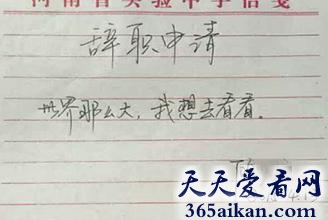 河南省实验中学信笺
辞职申请
世界那么大，我想去看看。
天天爱看网
365aikan.com